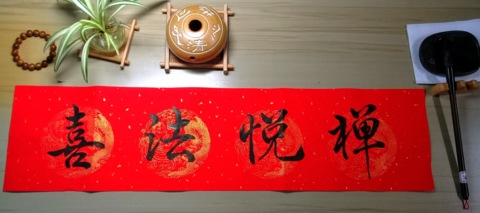 禅悦法喜